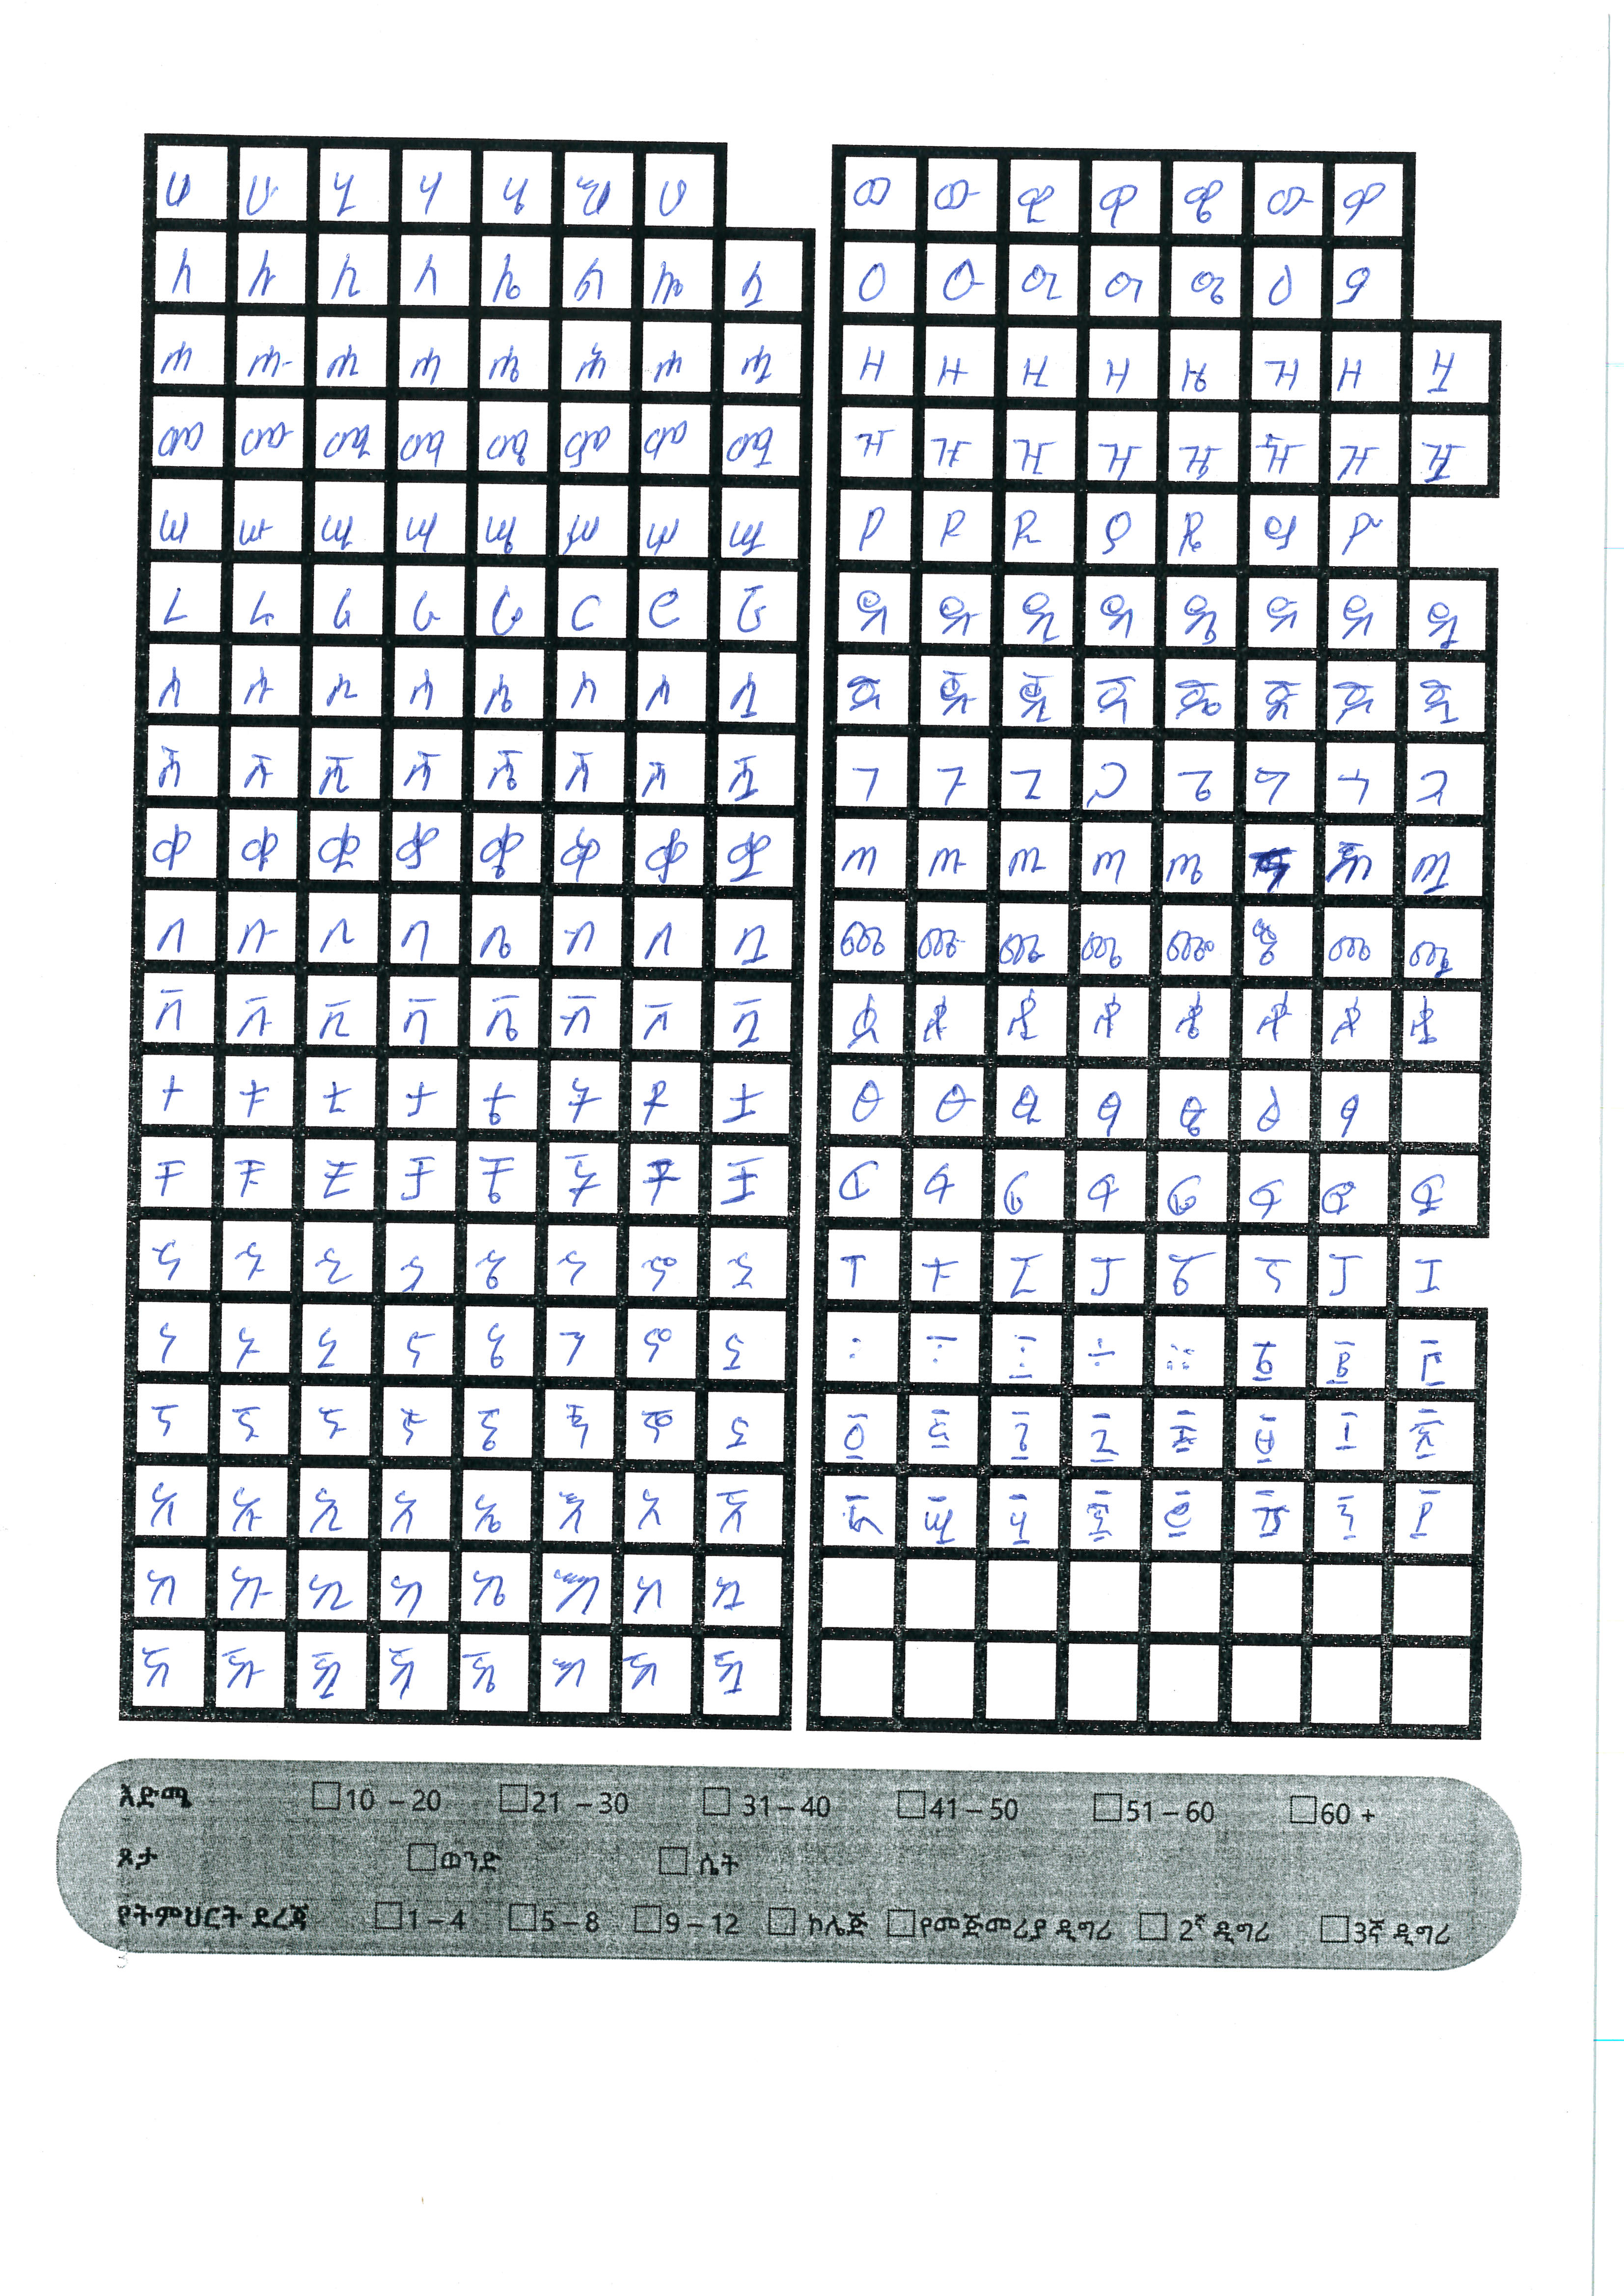 ሀ ሁ ሂ ሃ ሄ ህ ሆ
ለ ሉ ሊ ላ ሌ ል ሎ ሏ
ሐ ሑ ሒ ሓ ሔ ሕ ሖ ሗ
መ ሙ ሚ ማ ሜ ም ሞ ሟ
ሠ ሡ ሢ ሣ ሤ ሥ ሦ ሧ
ረ ሩ ሪ ራ ሬ ር ሮ ሯ
ሰ ሱ ሲ ሳ ሴ ስ ሶ ሷ
ሸ ሹ ሺ ሻ ሼ ሽ ሾ ሿ
ቀ ቁ ቂ ቃ ቄ ቅ ቆ ቋ
በ ቡ ቢ ባ ቤ ብ ቦ ቧ
ቨ ቩ ቪ ቫ ቬ ቭ ቮ ቯ
ተ ቱ ቲ ታ ቴ ት ቶ ቷ
ቸ ቹ ቺ ቻ ቼ ች ቾ ቿ
ኀ ኁ ኂ ኃ ኄ ኅ ኆ ኋ
ነ ኑ ኒ ና ኔ ን ኖ ኗ
ኘ ኙ ኚ ኛ ኜ ኝ ኞ ኟ
አ ኡ ኢ ኣ ኤ እ ኦ ኧ
ከ ኩ ኪ ካ ኬ ክ ኮ ኳ
ኸ ኹ ኺ ኻ ኼ ኽ ኾ ዃ
ወ ዉ ዊ ዋ ዌ ው ዎ
ዐ ዑ ዒ ዓ ዔ ዕ ዖ
ዘ ዙ ዚ ዛ ዜ ዝ ዞ ዟ
ዠ ዡ ዢ ዣ ዤ ዥ ዦ ዧ
የ ዩ ዪ ያ ዬ ይ ዮ
ደ ዱ ዲ ዳ ዴ ድ ዶ ዷ
ጀ ጁ ጂ ጃ ጄ ጅ ጆ ጇ
ገ ጉ ጊ ጋ ጌ ግ ጎ ጓ
ጠ ጡ ጢ ጣ ጤ ጦ ጧ
ጨ ጩ ጪ ጫ ጬ ጭ ጮ ጯ
ጰ ጱ ጲ ጳ ጴ ጵ ጶ ጷ
ፀ ፁ ፂ ፃ ፄ ፅ ፆ
ፈ ፉ ፊ ፋ ፌ ፍ ፎ ፏ
ፐ ፑ ፒ ፓ ፔ ፕ ፖ ፗ
፡ ፣ ፤ ÷ ። ፩ ፪ ፫
፬ ፭ ፮ ፯ ፰ ፱ ፲ ፳
፴ ፵ ፶ ፷ ፸ ፹ ፺ ፻
እድሜ 10 – 20 21 – 30 31 – 40 41 – 50 51 – 60 60 +
ጾታ ወንድ ሴት
የትምህርት ደረጃ 1 – 4 5 – 8 9 – 12 ኮሌጅ የመጅመሪያ ዲግሪ 2ኛ ዲግሪ 3ኛ ዲግሪ